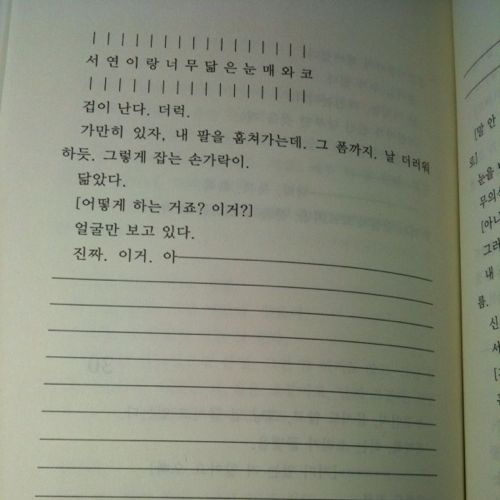 | | | | | | | | | | | | | | | |
서 연 이 랑 너 무 닮 은 눈 매 와 코
| | | | | | | | | | | | | | | |
겁이 난다. 더럭.
가만히 있자, 내 팔을 훔쳐가는데. 그 폼까지. 날 더러워
하듯. 그렇게 잡는 손가락이.
닮았다.
[어떻게 하는 거죠? 이거?]
얼굴만 보고 있다.
진짜. 이거. 아―――――――――――――
[말 안
로]
눈을
무의
[아니
그러
내
름.
신
서